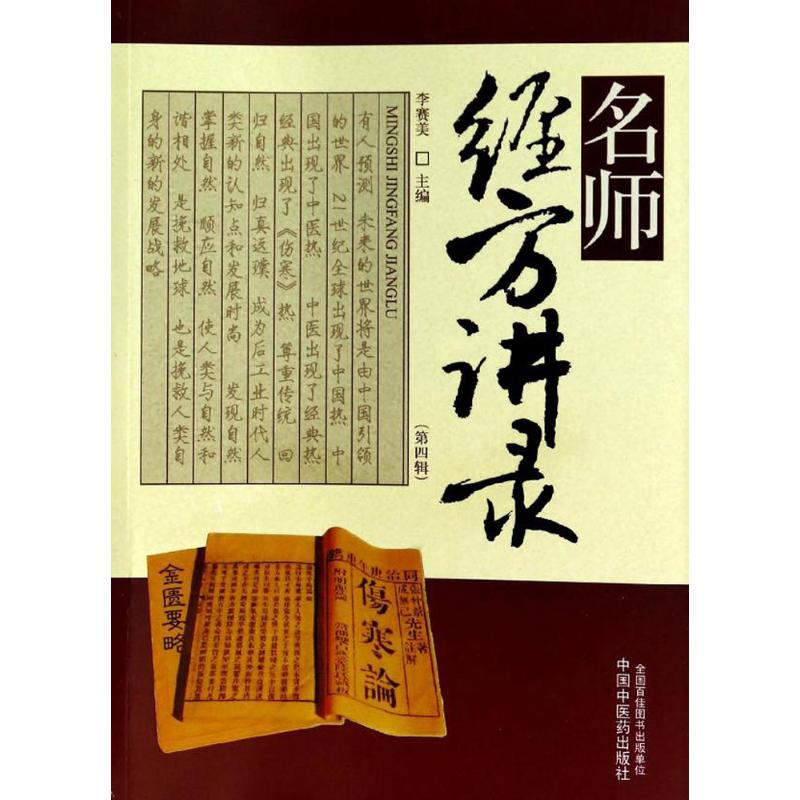 名师
经方讲录
(第四辑)
李赛美 □ 主编
MINGSHI JINGFANG JIANGLU
有人预测 未来的世界将是由中国引领
的世界 21世纪全球出现了中国热 中
国出现了中医热 中医出现了经典热
经典出现了《伤寒》热 尊重传统 回
归自然 归真返璞 成为后工业时代人
类新的认知点和发展时尚 发现自然
掌握自然 顺应自然 使人类与自然和
谐相处 是挽救地球 也是挽救人类自
身的新的发展战略
金匮要略
同治年重
張仲景先生著
成無己註解
傷寒論
全国百佳图书出版单位
中国中医药出版社